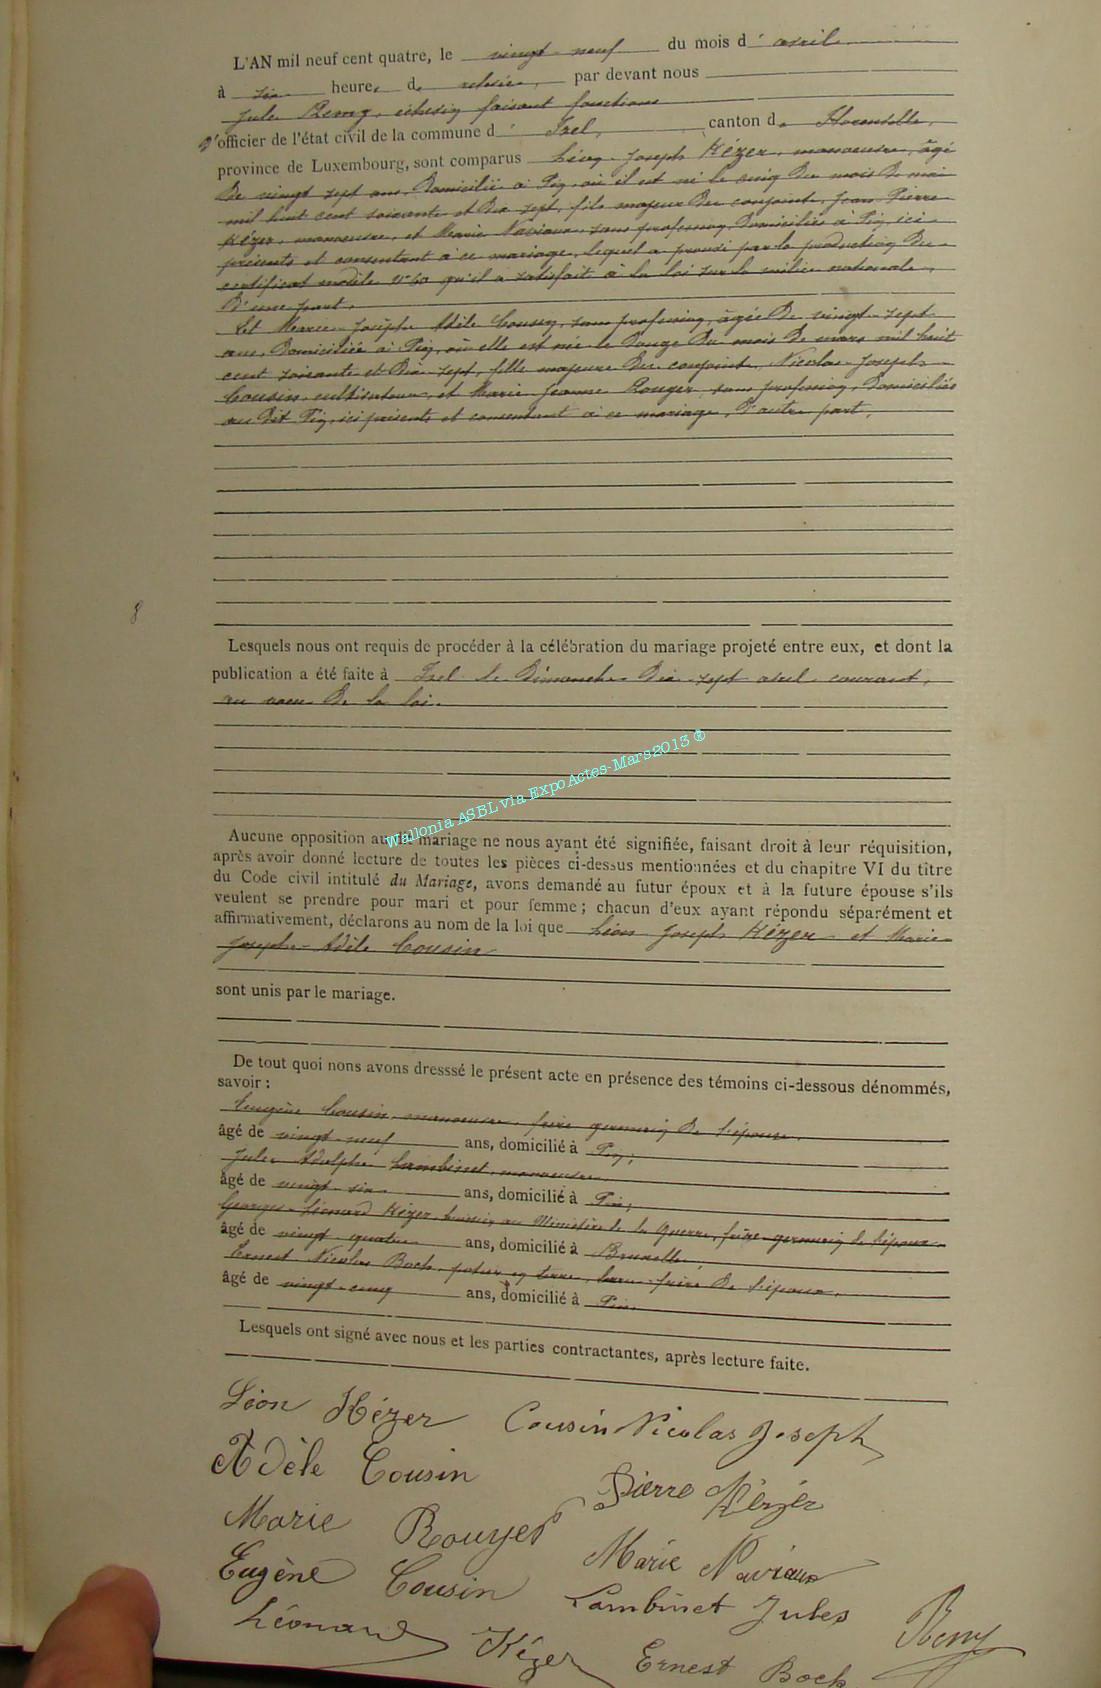 L'AN mil neuf cent quatre, le vingt-neuf du mois d'avril
à six heures de relevée, par devant nous
Jules Remy, échevin faisant fonctions
d'officier de l'état civil de la commune d'Izel, canton de Florenville,
province de Luxembourg, sont comparus Léon-Joseph Kézer, manoeuvre, âgé
de vingt-sept ans, domicilié à Pin, où il est né le cinq du mois de mai
mil huit cent soixante et dix-sept, fils majeur des conjoints, Jean-Pierre
Kézer, manoeuvre, et Marie Naviaux, sans profession, domiciliés à Pin, ici
présents et consentant à ce mariage, lequel a prouvé par la production du
certificat modèle n° 60 qu'il a satisfait à la loi sur la milice nationale,
d'une part,
Et Marie-Josèphe Adèle Cousin, sans profession, âgée de vingt-sept
ans, domiciliée à Pin, où elle est née le douze du mois de mars mil huit
cent soixante et dix-sept, fille majeure des conjoints, Nicolas-Joseph
Cousin, cultivateur, et Marie Jeanne Rouyer, sans profession, domiciliés
au dit Pin, ici présents et consentant à ce mariage, d'autre part,
8
Lesquels nous ont requis de procéder à la célébration du mariage projeté entre eux, et dont la
publication a été faite à Izel le dimanche dix-sept avril courant,
au voeu de la loi.
Wallonia ASBL via ExpoActes-Mars2013 ®
Aucune opposition au dit mariage ne nous ayant été signifiée, faisant droit à leur réquisition,
après avoir donné lecture de toutes les pièces ci-dessus mentionnées et du chapitre VI du titre
du Code civil intitulé du Mariage, avons demandé au futur époux et à la future épouse s'ils
veulent se prendre pour mari et pour femme ; chacun d'eux ayant répondu séparément et
affirmativement, déclarons au nom de la loi que Léon-Joseph Kézer et Marie
Josèphe-Adèle Cousin
sont unis par le mariage.
De tout quoi nons avons dresssé le présent acte en présence des témoins ci-dessous dénommés,
savoir :
Eugène Cousin, manoeuvre, frère germain de l'épouse,
âgé de vingt-neuf ans, domicilié à Pin;
Jules Adolphe Lambinet, manoeuvre,
âgé de vingt-six ans, domicilié à Pin;
Georges-Léonard Kézer, huissier au Ministère de la Guerre, frère germain de l'époux
âgé de vingt-quatre ans, domicilié à Bruxelles,
Ernest Nicolas Bock, potier en terre, beau-frère de l'époux,
âgé de vingt-cinq ans, domicilié à Pin.
Lesquels ont signé avec nous et les parties contractantes, après lecture faite.
Léon Kézer Cousin Nicolas Joseph
Adèle Cousin Pierre Kézer
Marie Rouyer Marie Naviaux
Eugène Cousin Lambinet Jules
Léonard Kézer Ernest Bock Remy